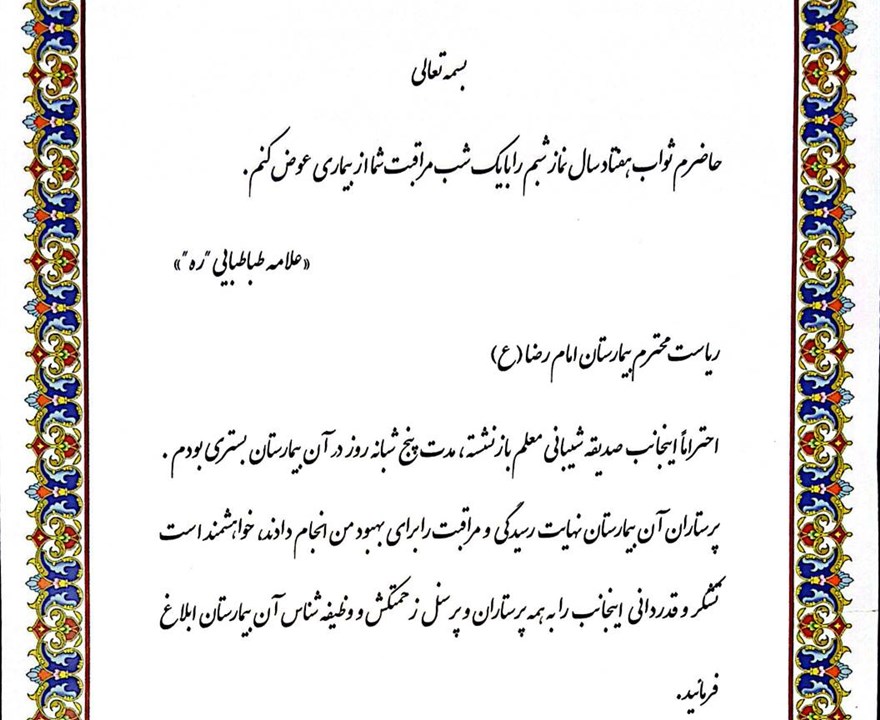 بسمه تعالی
حاضرم ثواب هفتاد سال نماز شبم را با یک شب مراقبت شما از بیماری عوض کنم.
«علامه طباطبایی "ره"»
ریاست محترم بیمارستان امام رضا (ع)
احتراماً اینجانب صدیقه شیبانی معلم بازنشسته، مدت پنج شبانه روز در آن بیمارستان بستری بودم .
پرستاران آن بیمارستان نهایت رسیدگی و مراقبت را برای بهبود من انجام دادند، خواهشمند است
تشکر و قدردانی اینجانب را به همه پرستاران و پرسنل زحمتکش و وظیفه شناس آن بیمارستان ابلاغ
فرمائید.